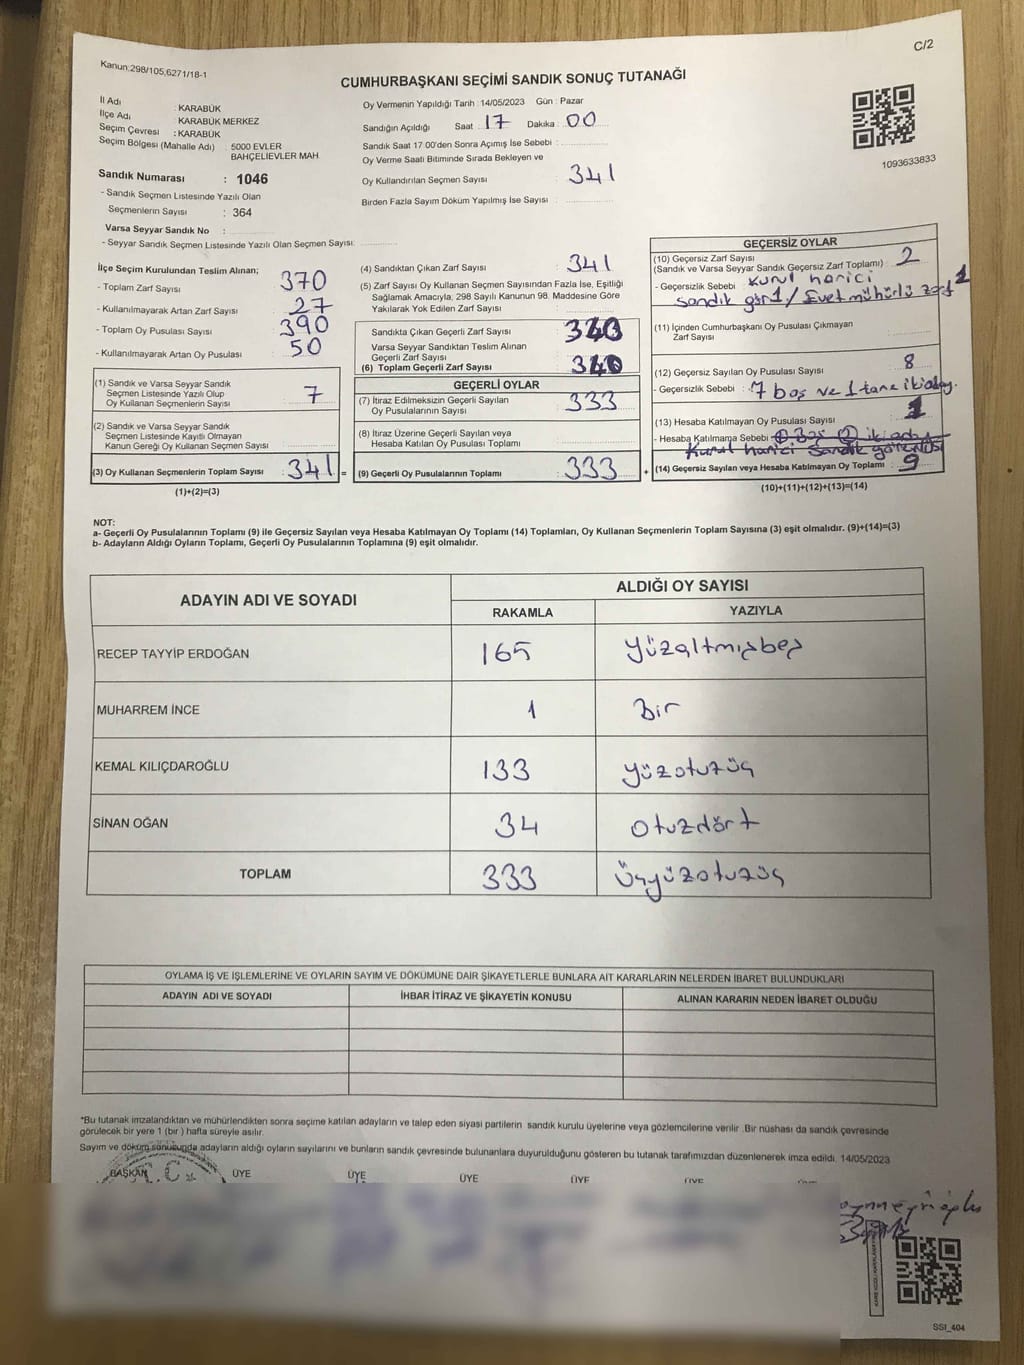 Kanun:298/105,6271/18-1
C/2
CUMHURBAŞKANI SEÇİMİ SANDIK SONUÇ TUTANAĞI
İl Adı : KARABÜK
İlçe Adı : KARABÜK MERKEZ
Seçim Çevresi : KARABÜK
Seçim Bölgesi (Mahalle Adı) : 5000 EVLER
BAHÇELİEVLER MAH
Sandık Numarası : 1046
- Sandık Seçmen Listesinde Yazılı Olan
Seçmenlerin Sayısı : 364
Varsa Seyyar Sandık No :
- Seyyar Sandık Seçmen Listesinde Yazılı Olan Seçmen Sayısı:
Oy Vermenin Yapıldığı Tarih : 14/05/2023 Gün : Pazar
Sandığın Açıldığı Saat : 17 Dakika : 00
Sandık Saat 17.00'den Sonra Açımış İse Sebebi :
Oy Verme Saati Bitiminde Sırada Bekleyen ve
Oy Kullandırılan Seçmen Sayısı : 341
Birden Fazla Sayım Döküm Yapılmış İse Sayısı :
1093633833
İlçe Seçim Kurulundan Teslim Alınan;
- Toplam Zarf Sayısı : 370
- Kullanılmayarak Artan Zarf Sayısı : 27
- Toplam Oy Pusulası Sayısı : 390
- Kullanılmayarak Artan Oy Pusulası : 50
(1) Sandık ve Varsa Seyyar Sandık
Seçmen Listesinde Yazılı Olup
Oy Kullanan Seçmenlerin Sayısı : 7
(2) Sandık ve Varsa Seyyar Sandık
Seçmen Listesinde Kayıtlı Olmayan
Kanun Gereği Oy Kullanan Seçmen Sayısı :
(3) Oy Kullanan Seçmenlerin Toplam Sayısı : 341 =
(1)+(2)=(3)
(4) Sandıktan Çıkan Zarf Sayısı : 341
(5) Zarf Sayısı Oy Kullanan Seçmen Sayısından Fazla İse, Eşitliği
Sağlamak Amacıyla, 298 Sayılı Kanunun 98. Maddesine Göre
Yakılarak Yok Edilen Zarf Sayısı :
Sandıkta Çıkan Geçerli Zarf Sayısı : 340
Varsa Seyyar Sandıktan Teslim Alınan
Geçerli Zarf Sayısı :
(6) Toplam Geçerli Zarf Sayısı : 340
GEÇERLİ OYLAR
(7) İtiraz Edilmeksizin Geçerli Sayılan
Oy Pusulalarının Sayısı : 333
(8) İtiraz Üzerine Geçerli Sayılan veya
Hesaba Katılan Oy Pusulası Toplamı :
(9) Geçerli Oy Pusulalarının Toplamı : 333 +
GEÇERSİZ OYLAR
(10) Geçersiz Zarf Sayısı
(Sandık ve Varsa Seyyar Sandık Geçersiz Zarf Toplamı) : 2
- Geçersizlik Sebebi : Kurul harici 1
sandık gör1 / Evet mühürlü zarf
(11) İçinden Cumhurbaşkanı Oy Pusulası Çıkmayan
Zarf Sayısı :
(12) Geçersiz Sayılan Oy Pusulası Sayısı : 8
- Geçersizlik Sebebi : 7 boş ve 1 tane iki aday.
(13) Hesaba Katılmayan Oy Pusulası Sayısı : 1
- Hesaba Katılmama Sebebi :
Kurul harici sandık görevlisi
(14) Geçersiz Sayılan veya Hesaba Katılmayan Oy Toplamı : 9
(10)+(11)+(12)+(13)=(14)
NOT:
a- Geçerli Oy Pusulalarının Toplamı (9) ile Geçersiz Sayılan veya Hesaba Katılmayan Oy Toplamı (14) Toplamları, Oy Kullanan Seçmenlerin Toplam Sayısına (3) eşit olmalıdır. (9)+(14)=(3)
b- Adayların Aldığı Oyların Toplamı, Geçerli Oy Pusulalarının Toplamına (9) eşit olmalıdır.
ADAYIN ADI VE SOYADI
ALDIĞI OY SAYISI
RAKAMLA YAZIYLA
RECEP TAYYİP ERDOĞAN 165 yüzaltmışbeş
MUHARREM İNCE 1 Bir
KEMAL KILIÇDAROĞLU 133 yüzotuzüç
SİNAN OĞAN 34 otuzdört
TOPLAM 333 Üçyüzotuzüç
OYLAMA İŞ VE İŞLEMLERİNE VE OYLARIN SAYIM VE DÖKÜMÜNE DAİR ŞİKAYETLERLE BUNLARA AİT KARARLARIN NELERDEN İBARET BULUNDUKLARI
ADAYIN ADI VE SOYADI İHBAR İTİRAZ VE ŞİKAYETİN KONUSU ALINAN KARARIN NEDEN İBARET OLDUĞU
*Bu tutanak imzalandıktan ve mühürlendikten sonra seçime katılan adayların ve talep eden siyasi partilerin sandık kurulu üyelerine veya gözlemcilerine verilir .Bir nüshası da sandık çevresinde
görülecek bir yere 1 (bir ) hafta süreyle asılır.
Sayım ve döküm sonucunda adayların aldığı oyların sayılarını ve bunların sandık çevresinde bulunanlara duyurulduğunu gösteren bu tutanak tarafımızdan düzenlenerek imza edildi. 14/05/2023
BAŞKAN ÜYE ÜYE ÜYE ÜYE ÜYE
T.C.
SSI_404